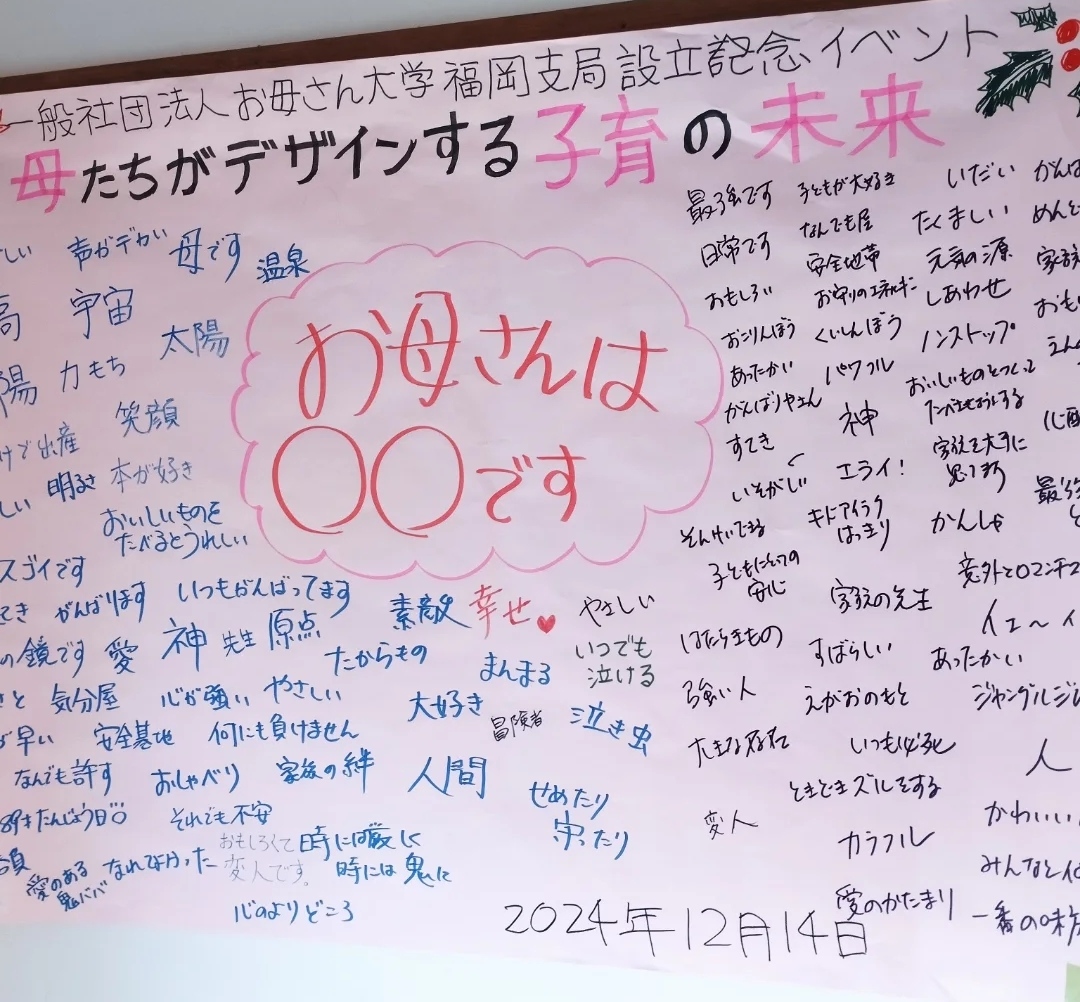 一般社団法人お母さん大学福岡支局設立記念イベント
母たちがデザインする子育の未来
お母さんは
〇〇です
声がデカい
母です
温泉
宇宙
太陽
力もち
笑顔
けで出産
明るさ
本が好き
おいしいものを
たべるとうれしい
スゴイです
がんばります
いつもがんばってます
素敵
幸せ♥
やさしい
の鏡です
愛
神
先生
原点
たからもの
まんまる
いつでも
泣ける
気分屋
心が強い
やさしい
大好き
冒険者
泣き虫
早い
安全基地
何にも負けません
なんでも許す
おしゃべり
家族の絆
人間
せめたり
守ったり
89才たんじょう日
それでも不安
おもしろくて
変人です。
時には厳しく
時には鬼に
愛のある
鬼ババ
なれてよかった
心のよりどころ
最強です
子どもが大好き
いだい
日常です
なんでも屋
たくましい
安全地帯
元気の源
家族
おもしろい
お守りのエネルギー
しあわせ
おこりんぼう
くいしんぼう
ノンストップ
あったかい
パワフル
おいしいものをつくって
がんばりやさん
神
すてき
家族を大事に
思てます
いそがしい
エライ!
最強
そんけいできる
キドアイラク
はっきり
かんしゃ
子どもにとっての
安心
家族の先生
意外とロマンチ
イェ〜イ
はたらきもの
すばらしい
あったかい
強い人
えがおのもと
ジャングルジ
大きな存在
いつも必死
人
ときどきズルをする
変人
カラフル
かわいい
みんなと
愛のかたまり
一番の味方
2024年12月14日